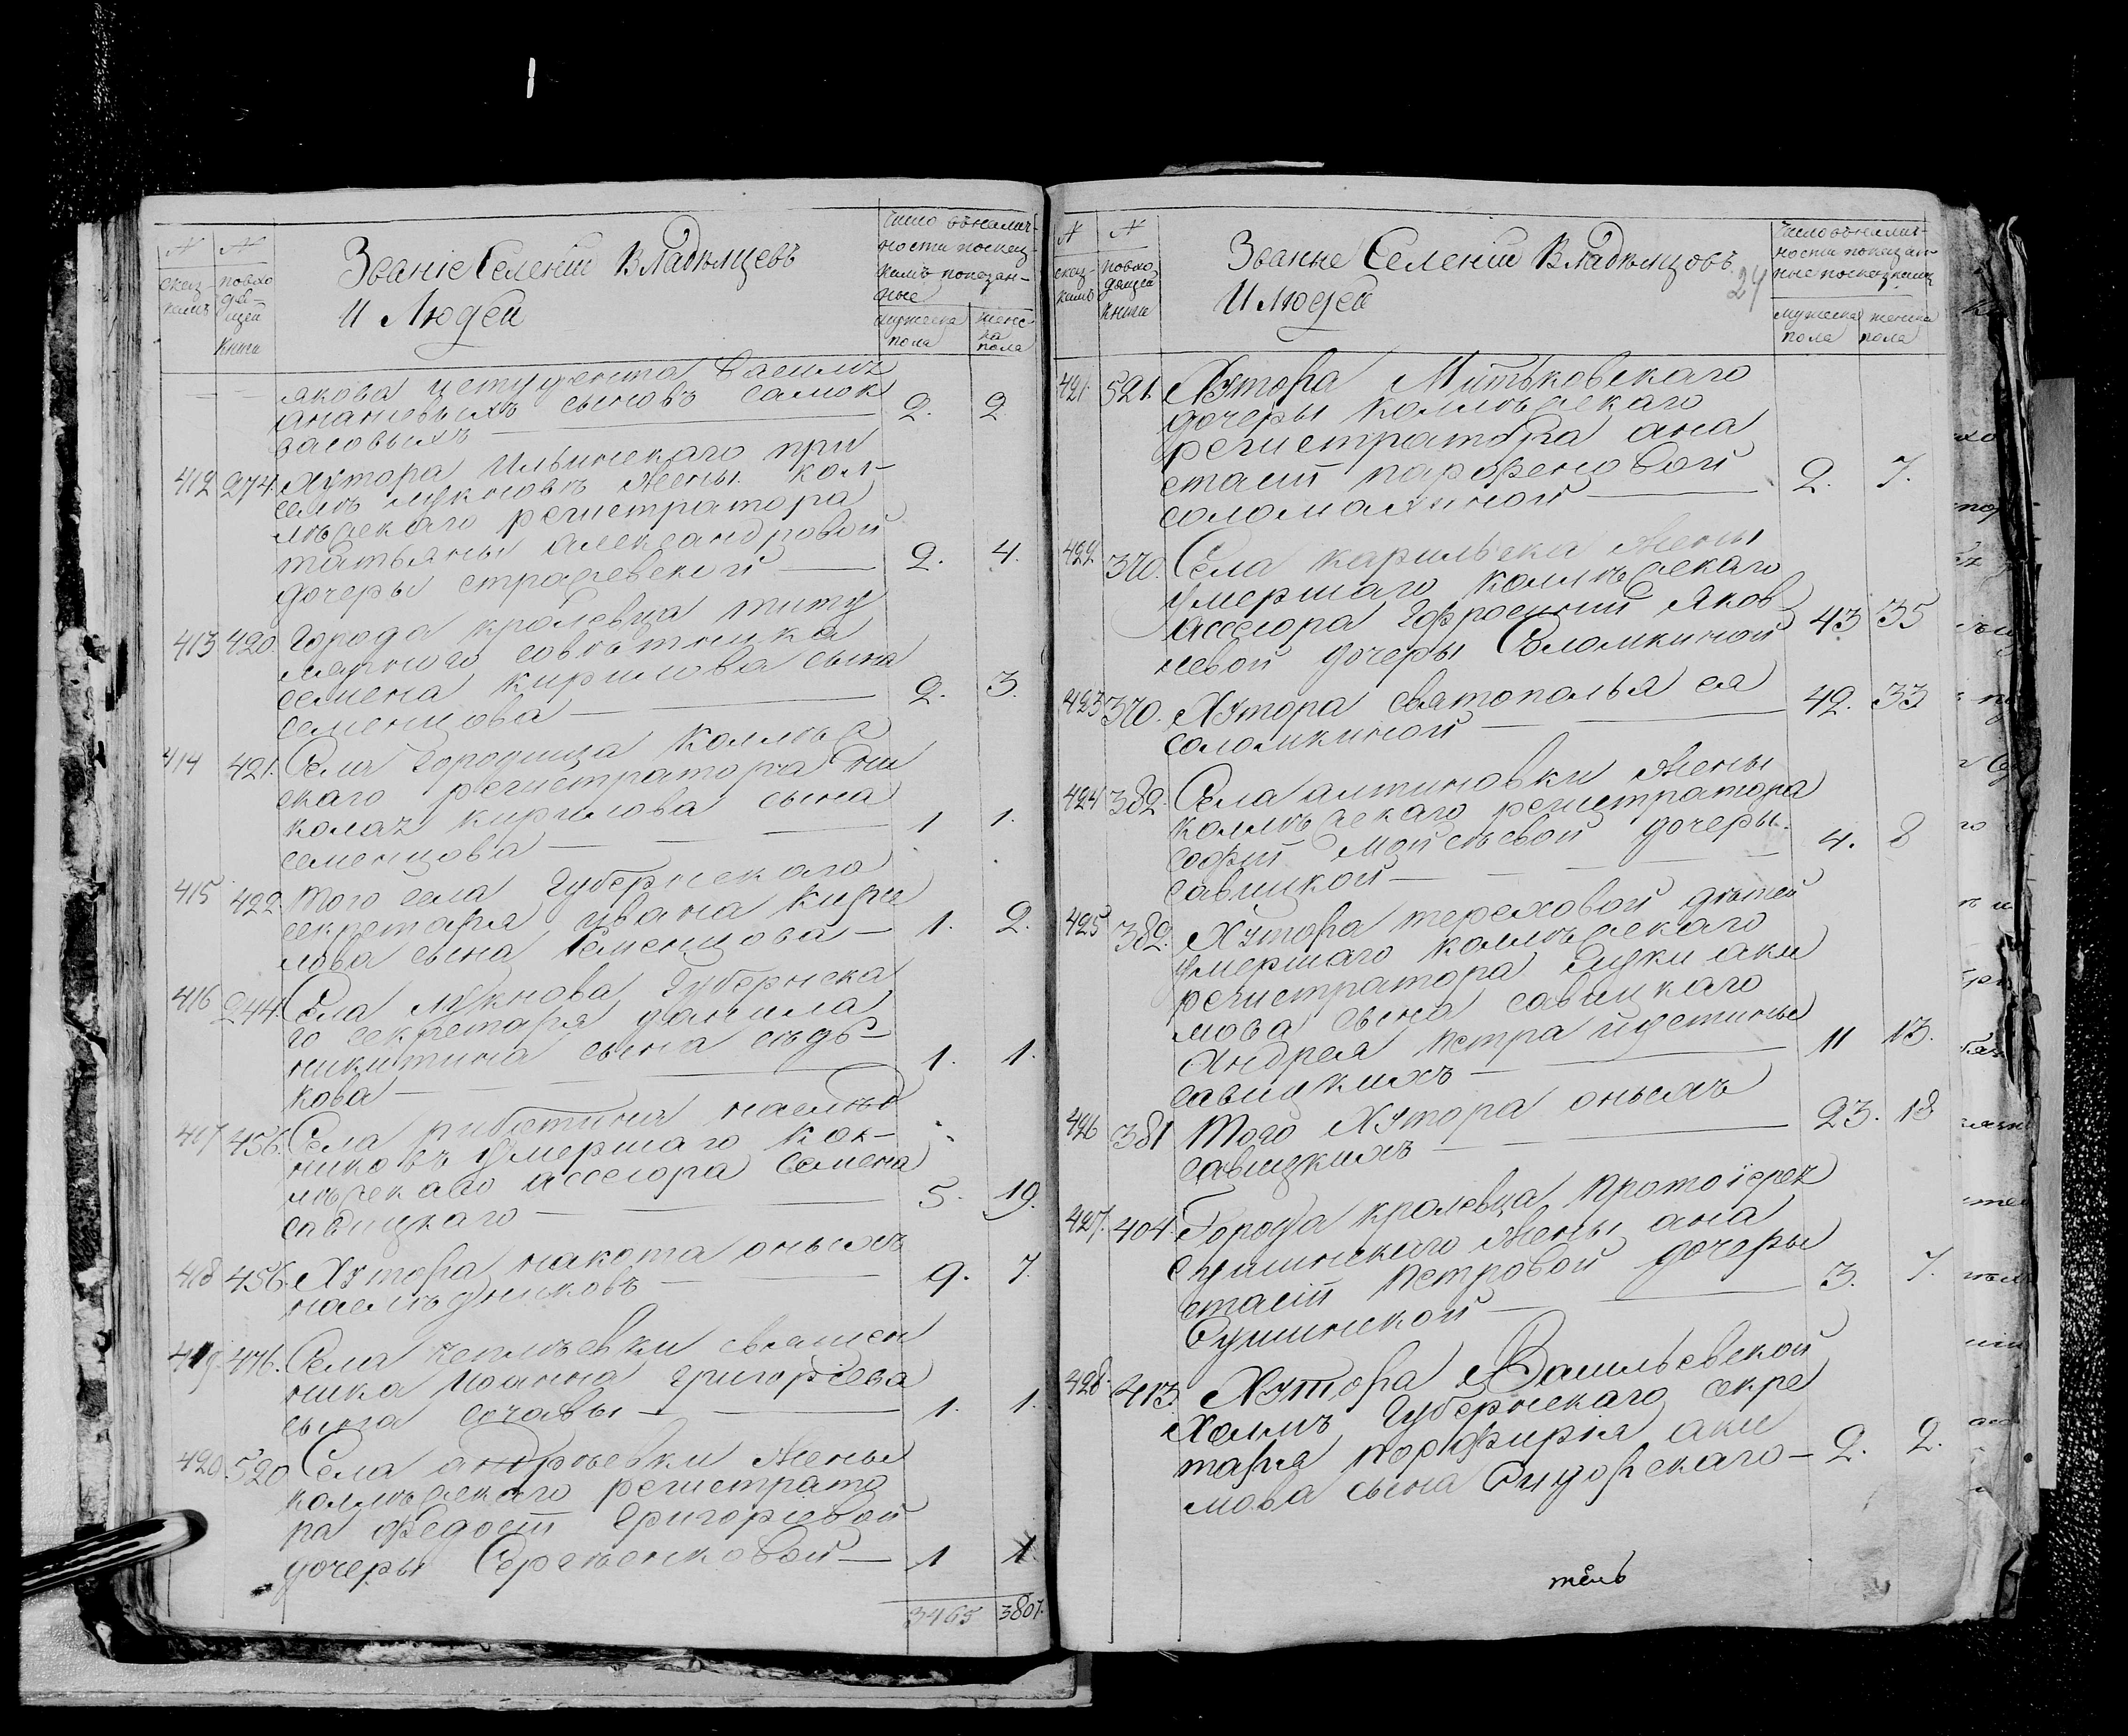 N
сказкамъ
N
повхо
дя
щей
книги
Званіе Селеній Владѣлцевъ
И Людей
Число въналич-
ности посказ-
камъ показан-
ные
мужеска
пола
женс
ка
пола
якова истудента Василія
ананіевыхъ сыновъ самок
васовыхъ 2. 2
412 274. Хутора Ильинскаго при
селѣ мукновѣ жены кол-
лѣжскаго регистратора
татьяны александровой
дочеры страдевской 2. 4.
413 420. Города кролевца титу
лярного совѣтника
семена кирилова сына
семенцова 2. 3.
414 421. Села городища коллѣж
скаго регистратора ни
колая кирилова сына
семенцова 1 1.
415 422. того села Губернскаго
секретаря ивана кири
лова сына Семенцова 1. 2.
416 244. Села мукнова Губернска
го секретаря данила
никитина сына сѣдь-
кова 1. 1.
417 456. Села риботина наслѣд
никовъ умершаго кол-
лѣжскаго ассесора Семена
савицкаго 5. 19.
418 456. Хутора накота оныхъ
наслѣдниковъ 9. 7.
419 476. Села чеплѣевки священ
ника Иоанна Григорѣева
сына сочавы 1. 1.
420 520. Села андрѣевки жены
коллѣжскаго регистрато
ра федосіи Григорѣевой
дочеры Сережѣнковой 1 1
3465 3807.
N
сказ-
камъ
N
повхо
дящей
книги
Званіе Селеній Владѣлцовъ
И людей
24
Число въналич-
ности показан-
ные посказкамъ
мужеска
пола
женска
пола
421. 521. Хутора Митьковскаго
дочеры коллѣжскаго
регистратора ана
стасіи парфеновой
соломахиной 2. 7.
422 370. Села карильска жены
умершаго коллѣжскаго
ассесора Ефросиніи Яков
левой дочеры Соломкиной 43 35
423 370. Хутора святополья ея
соломкиной 42. 33
424 382. Села алтиновки жены
коллѣжскаго регистратора
софіи мойсѣевой дочеры
савицкой 4. 8
425 382. Хутора тереховой дѣтей
умершаго коллѣжскаго
регистратора Луки аки
мова сына савицкаго
Андрея петра иустины
савицкихъ 11 13.
426 381 Того Хутора оныхъ
савицкихъ 23. 18
427. 404. Города кролевца протоіерея
Сушинскаго жены ана
стасіи петровой дочеры
Сушинской 3. 7.
428. 413. Хутора Васильевской
Холмъ Губернскаго секре
таря порфирія аки
мова сына Сидорскаго 2. 2.